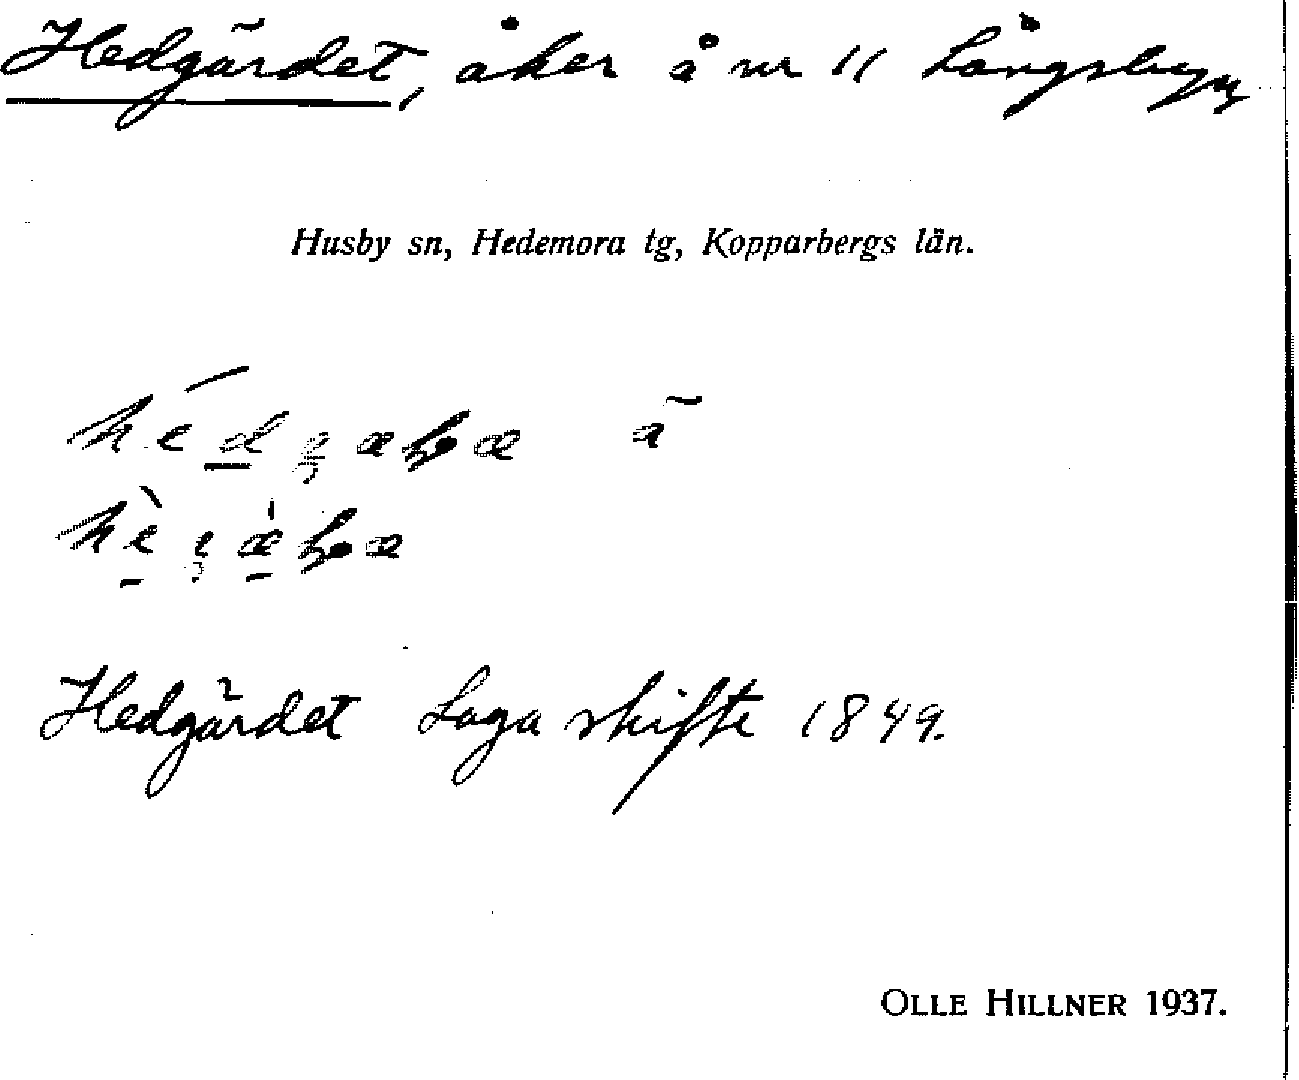 Hedgärdet, åker å nr 11 Långsbyn
Husby sn, Hedemora tg, Kopparbergs län.
Hedgärdet Laga skifte 1849.
OLLE HILLNER 1937.